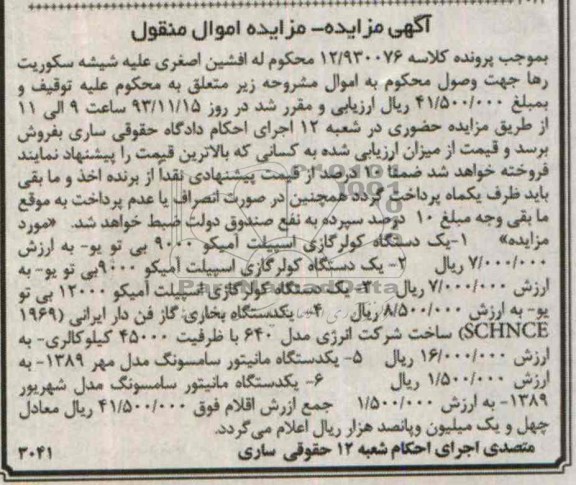 آگهی مزایده- مزایده اموال منقول
بموجب پرونده کلاسه ۱۲/۹۳۰۰۷۶ محکوم له افشین اصغری علیه شیشه سکوریت
رها جهت وصول محکوم به اموال مشروحه زیر متعلق به محکوم علیه توقیف و
بمبلغ ۴۱/۵۰۰/۰۰۰ ریال ارزیابی و مقرر شد در روز ۹۳/۱۱/۱۵ ساعت ۹ الی ۱۱
از طریق مزایده حضوری در شعبه ۱۲ اجرای احکام دادگاه حقوقی ساری بفروش
برسد و قیمت از میزان ارزیابی شده به کسانی که بالاترین قیمت را پیشنهاد نمایند
فروخته خواهد شد ضمنا ۱۰ درصد از قیمت پیشنهادی نقدا از برنده اخذ و ما بقی
باید ظرف یکماه پرداخت گردد همچنین در صورت انصراف یا عدم پرداخت به موقع
ما بقی وجه مبلغ ۱۰ درصد سپرده به نفع صندوق دولت ضبط خواهد شد. «مورد
مزایده» ۱-یک دستگاه کولرگازی اسپیلت آمیکو ۹۰۰۰ بی تو یو- به ارزش
۷/۰۰۰/۰۰۰ ریال ۲- یک دستگاه کولرگازی اسپیلت آمیکو ۹۰۰۰بی تو یو- به
ارزش ۷/۰۰۰/۰۰۰ ریال ۳- یک دستگاه کولرگازی اسپیلت آمیکو ۱۲۰۰۰ بی تو
یو- به ارزش ۸/۵۰۰/۰۰۰ ریال ۴- یکدستگاه بخاری گاز فن دار ایرانی (۱۹۶۹
SCHNCE) ساخت شرکت انرژی مدل ۶۴۰ با ظرفیت ۴۵۰۰۰ کیلوکالری- به
ارزش ۱۶/۰۰۰/۰۰۰ ریال ۵- یکدستگاه مانیتور سامسونگ مدل مهر ۱۳۸۹- به
ارزش ۱/۵۰۰/۰۰۰ ریال ۶- یکدستگاه مانیتور سامسونگ مدل شهریور
۱۳۸۹- به ارزش ۱/۵۰۰/۰۰۰ جمع ارزش اقلام فوق ۴۱/۵۰۰/۰۰۰ ریال معادل
چهل و یک میلیون وپانصد هزار ریال اعلام می گردد.
متصدی اجرای احکام شعبه ۱۲ حقوقی ساری ۳۰۴۱